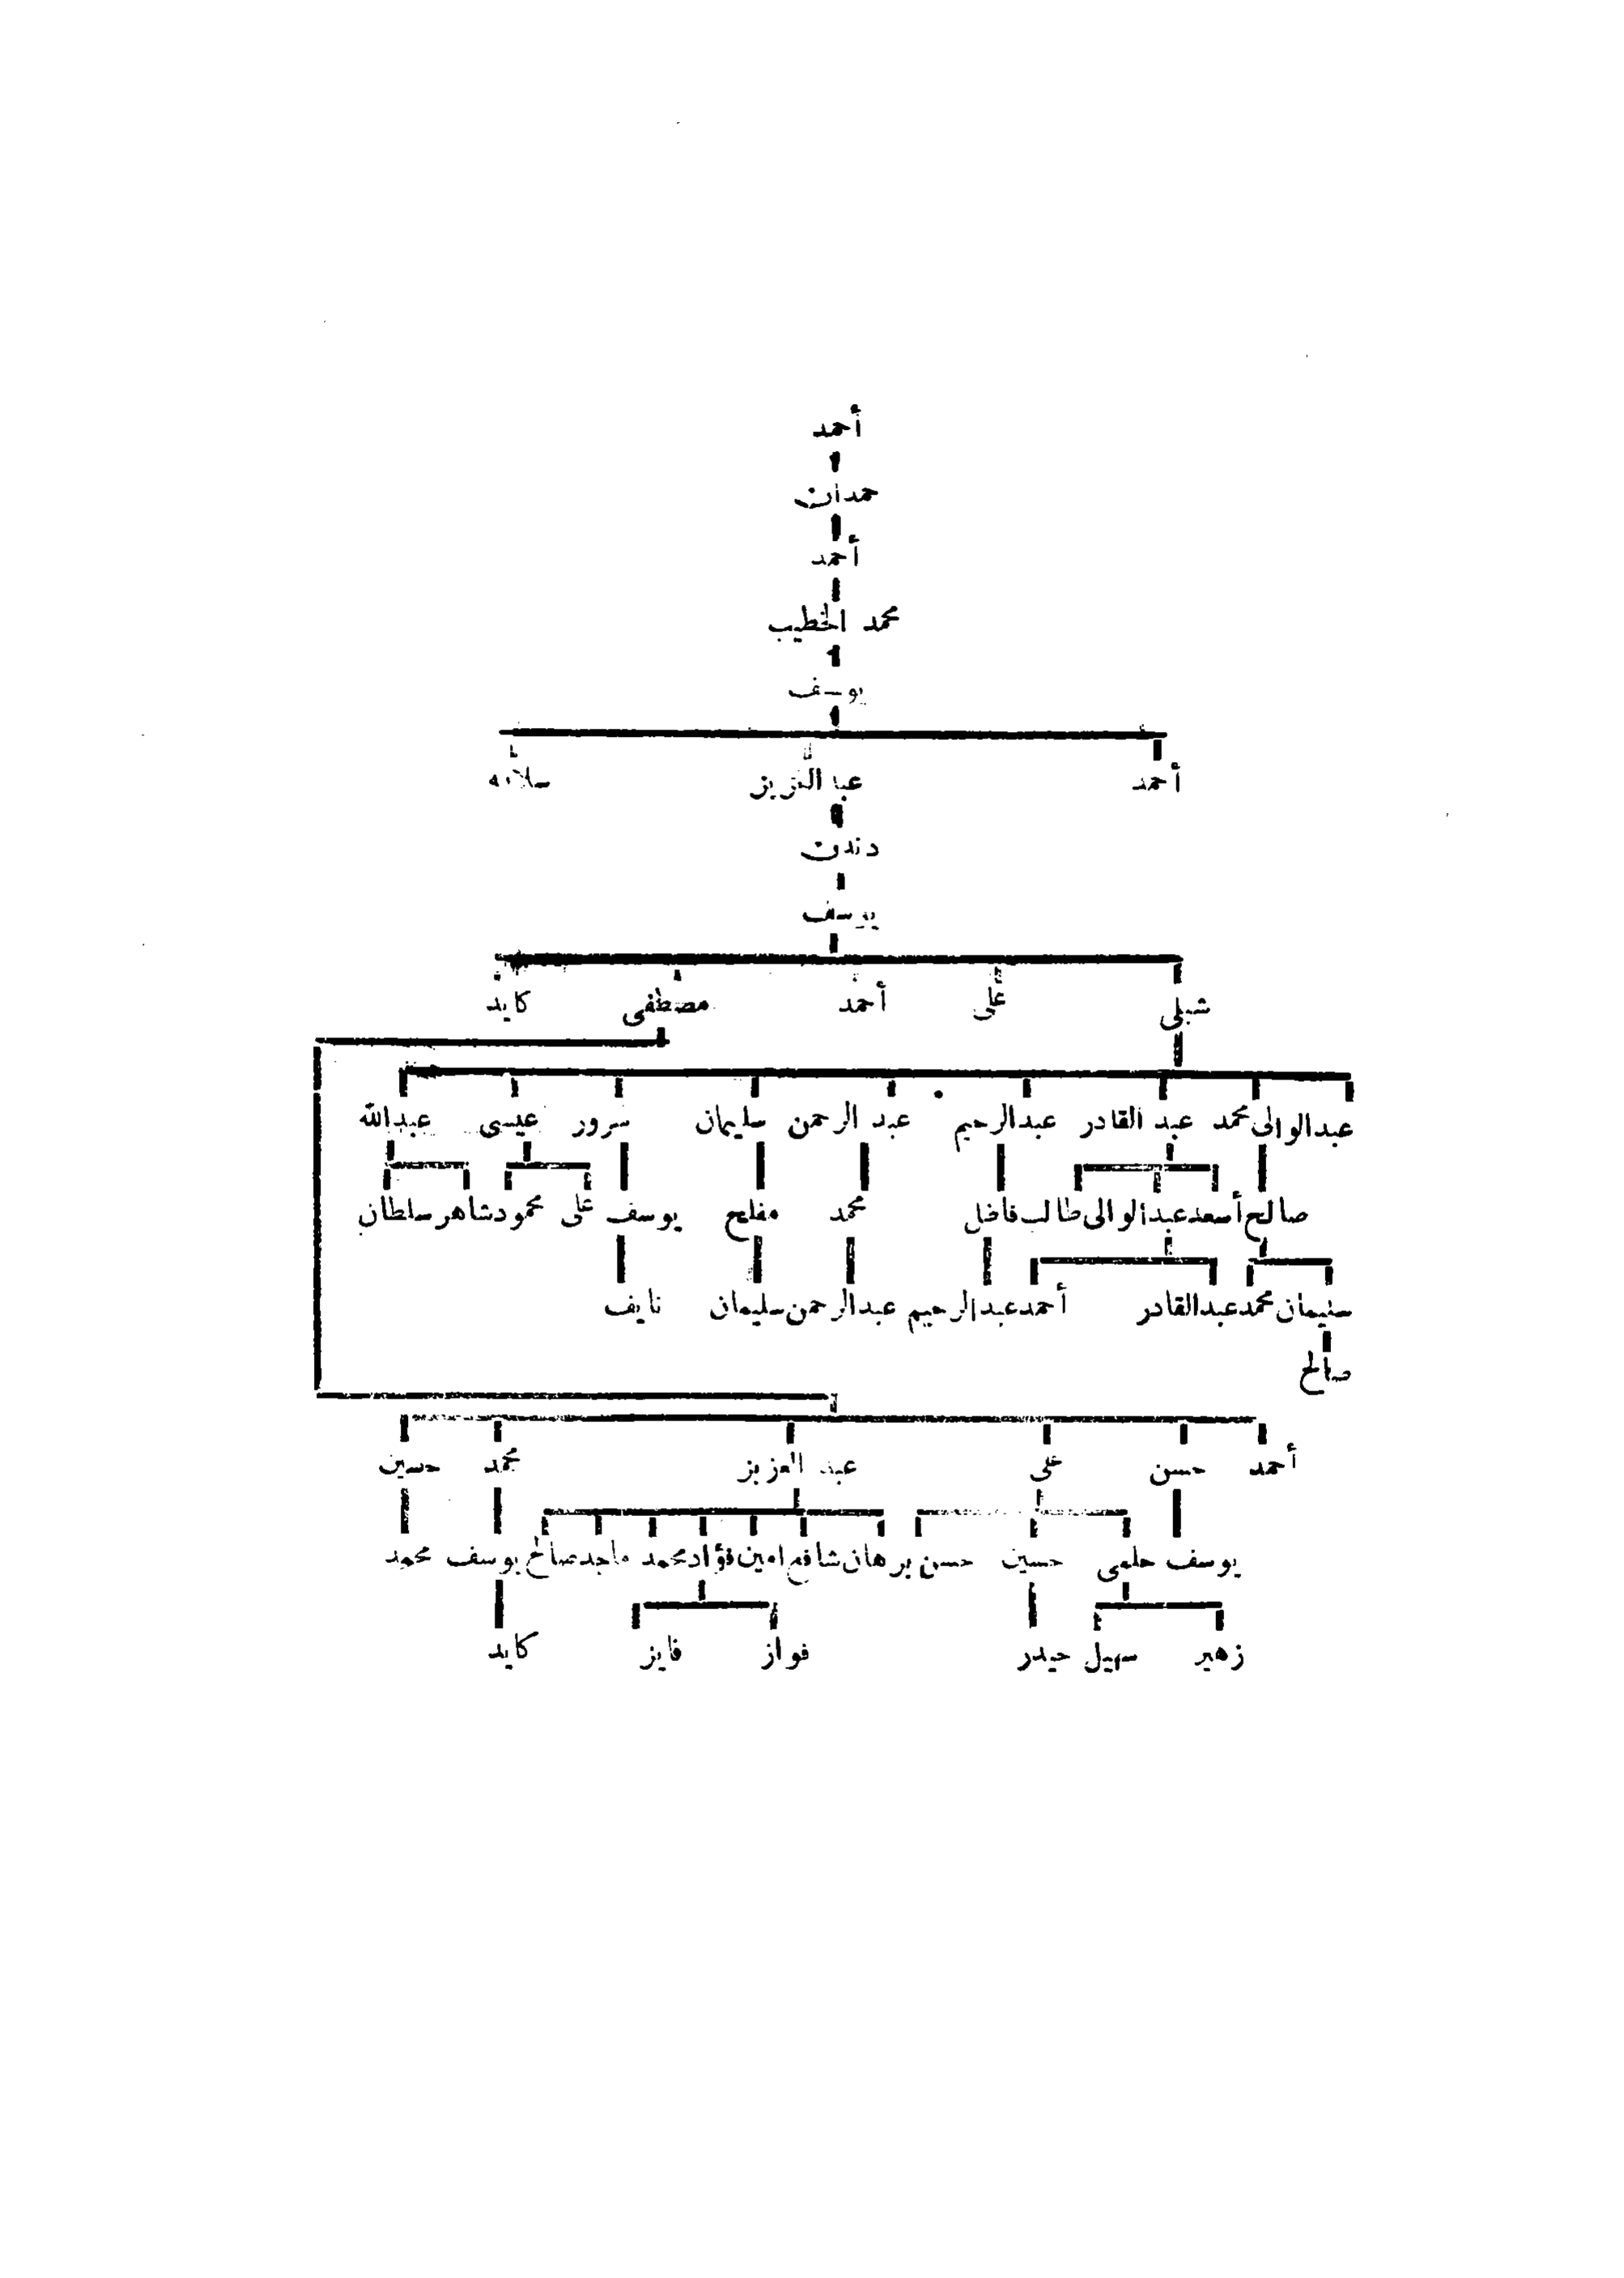 أحمد
حمدان
أحمد
محمد الخطيب
يوسف
أحمد عبد العزيز سلامه
دندن
يوسف
شبلى على أحمد مصطفى كايد
عبدالوالى محمد عبد القادر عبدالرحيم عبد الرحمن سليمان سرور عيسى عبدالله
صالح أسعد عبدالوالى طالب فاضل محمد مفلح يوسف على محمود شاهر سلطان
سليمان محمد عبدالقادر أحمد عبدالرحيم عبدالرحمن سليمان نايف
صالح
أحمد حسن على عبد العزيز محمد حسين
يوسف حلمى حسين حسن برهان شافع امين فؤاد محمد ماجد صالح يوسف محمد
زهير سهيل حيدر فواز فايز كايد